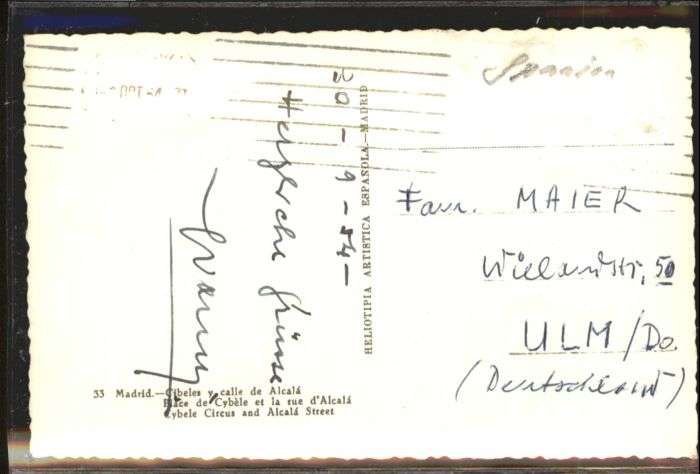 Spanien
30-9-54-
Herzliche Grüsse
HELIOTIPIA ARTISTICA ESPAÑOLA.—MADRID
Fam. MAIER
Wielandstr, 50
ULM/Do.
(Deutschland)
33 Madrid.—Cibeles y calle de Alcalá
Place de Cybèle et la rue d'Alcalá
Cybele Circus and Alcalá Street